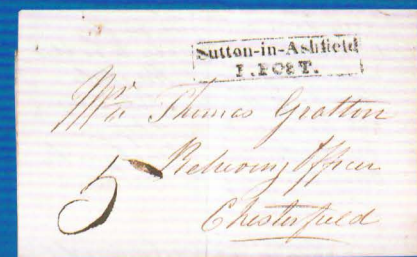 Sutton-in-Ashfield
P. POST.
Mr Thomas Gratton
5 Relieving Officer
Chesterfield